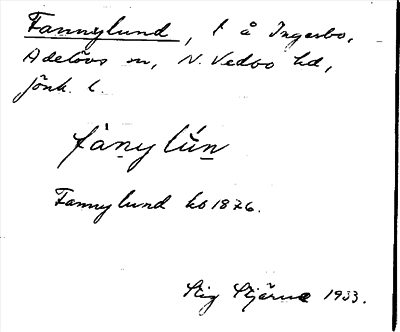 Fannylund, t å Ingarbo,
Adelövs sn, N. Vedbo hd,
Jönk. l.
fànylún
Fannylund kb 1876.
Stig Stjärne 1933.